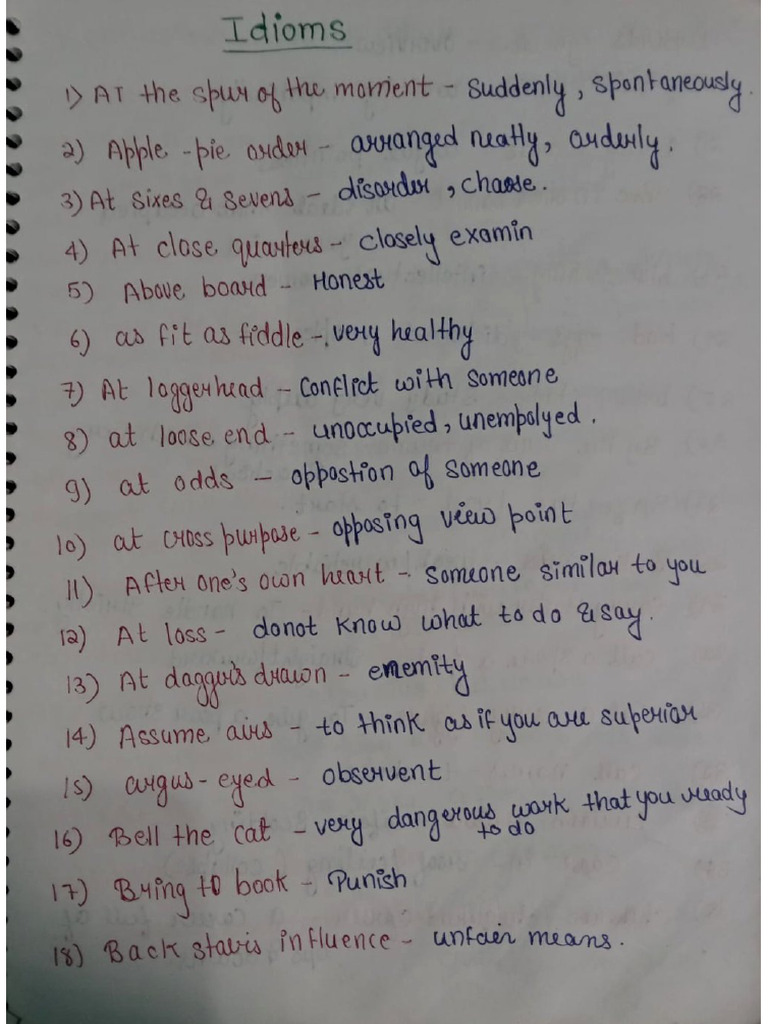 Idioms
1) AT the spur of the moment - suddenly, spontaneously.
2) Apple-pie order - arranged neatly, orderly.
3) At sixes & sevens - disorder, chaose.
4) At close quarters - closely examin
5) Above board - Honest
6) as fit as fiddle - very healthy
7) At loggerhead - Conflict with someone
8) at loose end - unoccupied, unempolyed.
9) at odds - oppostion of someone
10) at cross purpose - opposing view point
11) After one's own heart - someone similar to you
12) At loss - donot know what to do & say.
13) At dagger's drawn - enemity
14) Assume airs - to think as if you are superior
15) argus-eyed - observent
16) Bell the cat - very dangerous work that you ready
to do
17) Bring to book - Punish
18) Back stairs influence - unfair means.